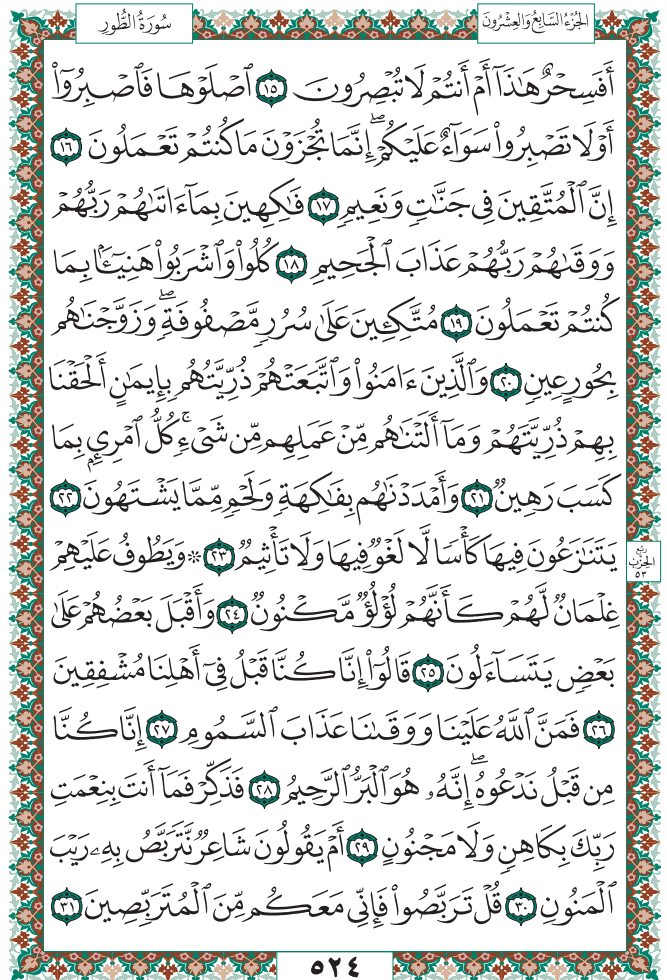 سُورَةُ الطُّورِ
الجُزْءُ السَّابِعُ وَالعِشْرُونَ
أَفَسِحْرٌ هَٰذَآ أَمْ أَنتُمْ لَا تُبْصِرُونَ ١٥ ٱصْلَوْهَا فَٱصْبِرُوٓا۟
أَوْ لَا تَصْبِرُوا۟ سَوَآءٌ عَلَيْكُمْ ۖ إِنَّمَا تُجْزَوْنَ مَا كُنتُمْ تَعْمَلُونَ ١٦
إِنَّ ٱلْمُتَّقِينَ فِى جَنَّٰتٍ وَنَعِيمٍ ١٧ فَٰكِهِينَ بِمَآ ءَاتَىٰهُمْ رَبُّهُمْ
وَوَقَىٰهُمْ رَبُّهُمْ عَذَابَ ٱلْجَحِيمِ ١٨ كُلُوا۟ وَٱشْرَبُوا۟ هَنِيٓـًٔۢا بِمَا
كُنتُمْ تَعْمَلُونَ ١٩ مُتَّكِـِٔينَ عَلَىٰ سُرُرٍ مَّصْفُوفَةٍ ۖ وَزَوَّجْنَٰهُم
بِحُورٍ عِينٍ ٢٠ وَٱلَّذِينَ ءَامَنُوا۟ وَٱتَّبَعَتْهُمْ ذُرِّيَّتُهُم بِإِيمَٰنٍ أَلْحَقْنَا
بِهِمْ ذُرِّيَّتَهُمْ وَمَآ أَلَتْنَٰهُم مِّنْ عَمَلِهِم مِّن شَىْءٍ ۚ كُلُّ ٱمْرِئٍۭ بِمَا
كَسَبَ رَهِينٌ ٢١ وَأَمْدَدْنَٰهُم بِفَٰكِهَةٍ وَلَحْمٍ مِّمَّا يَشْتَهُونَ ٢٢
يَتَنَٰزَعُونَ فِيهَا كَأْسًا لَّا لَغْوٌ فِيهَا وَلَا تَأْثِيمٌ ٢٣ ۞ وَيَطُوفُ عَلَيْهِمْ
ربع الحزب ٥٣
غِلْمَانٌ لَّهُمْ كَأَنَّهُمْ لُؤْلُؤٌ مَّكْنُونٌ ٢٤ وَأَقْبَلَ بَعْضُهُمْ عَلَىٰ
بَعْضٍ يَتَسَآءَلُونَ ٢٥ قَالُوٓا۟ إِنَّا كُنَّا قَبْلُ فِىٓ أَهْلِنَا مُشْفِقِينَ
٢٦ فَمَنَّ ٱللَّهُ عَلَيْنَا وَوَقَىٰنَا عَذَابَ ٱلسَّمُومِ ٢٧ إِنَّا كُنَّا
مِن قَبْلُ نَدْعُوهُ ۖ إِنَّهُۥ هُوَ ٱلْبَرُّ ٱلرَّحِيمُ ٢٨ فَذَكِّرْ فَمَآ أَنتَ بِنِعْمَتِ
رَبِّكَ بِكَاهِنٍ وَلَا مَجْنُونٍ ٢٩ أَمْ يَقُولُونَ شَاعِرٌ نَّتَرَبَّصُ بِهِۦ رَيْبَ
ٱلْمَنُونِ ٣٠ قُلْ تَرَبَّصُوا۟ فَإِنِّى مَعَكُم مِّنَ ٱلْمُتَرَبِّصِينَ ٣١
٥٢٤